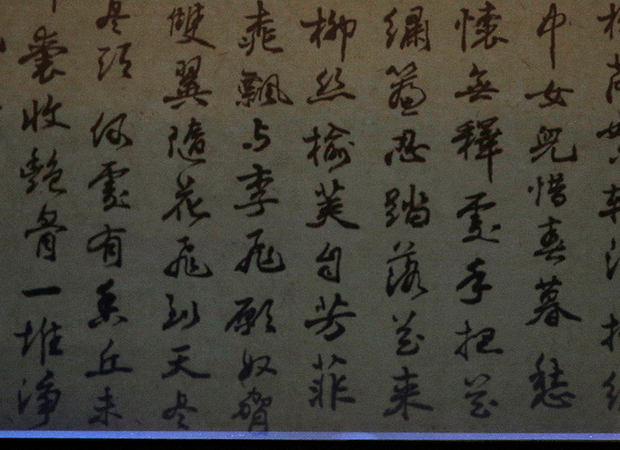 中女兒惜春暮愁
懷無釋處手把花
繡簾忍踏落花來
柳絲榆莢自芳菲
桃飄与李飛願奴脅
雙翼隨花飛到天尽
尽頭何處有香丘未
囊收艷骨一堆淨